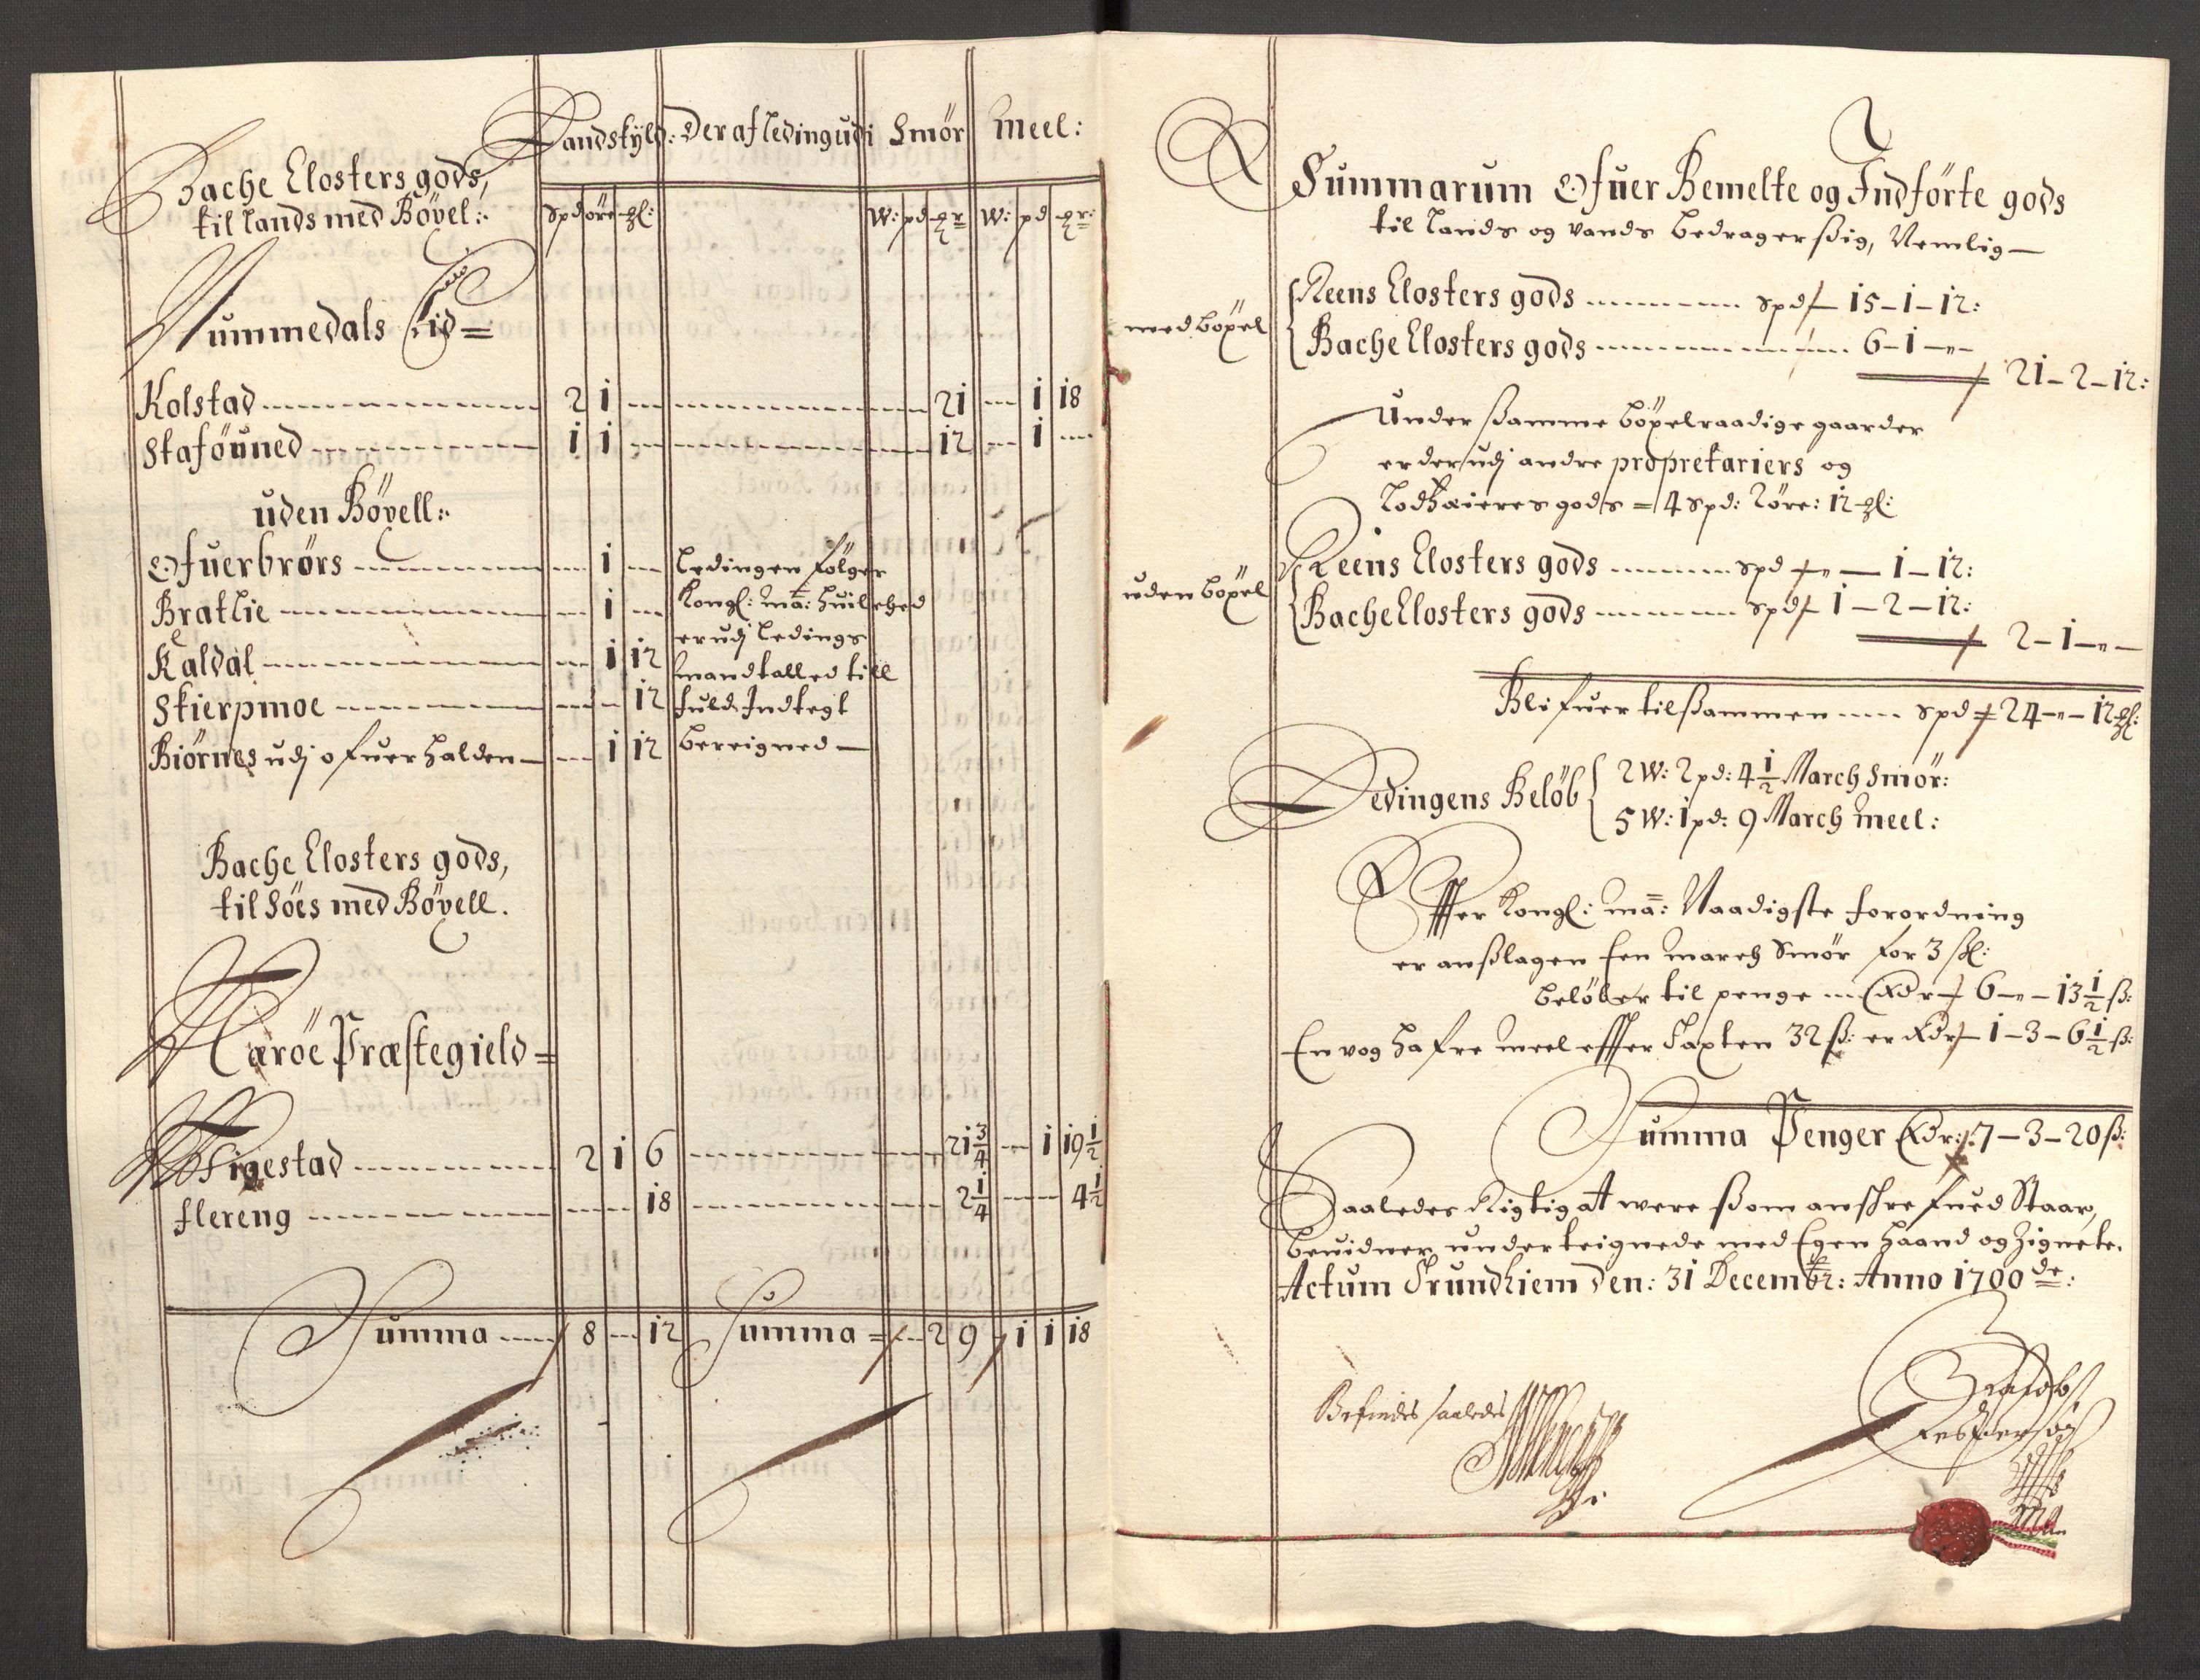 Landskÿld: Der af leding udi Smör Meel:
Bache Closters gods,
til lands med Bövel:
Spd öre ҩl: W: pd ҩr W: pd ҩr:
Nummedals Lid=
Kolstad 2 1 — 21 — 1 18
Staföuned 1 1 — 12 — 1 —
uden Bövell:
Ofuerbrörs — 1 — Ledingen fölger
Bratlie — 1 — Kongl: ma: huilched
Kaldal — 1 12 er udj Ledings
Skierpmoe — — 12 mandtalled till
fuld Indtegt
Biörnes udj ofuerhalden — 1 12 bereigned —
Bache Closters gods,
til Söes med Bövell.
Næröe Præstegield=
Figestad 2 1 6 — 21 3/4 — 1 19 1/2
flereng — — 18 — 2 1/4 — — 4 1/2
Summa 8 — 12 Summa = — 2 9 1 1 18
Summarum Ofuer Bemelte og Indförte gods
til Lands og Vands bedrager ßig, Nemlig —
med böxel
Reens Closters gods spd 15 — 1 — 12:
Bache Closters gods 6 — 1 — „ —
21 — 2 — 12:
Under ßamme böxelraadige gaarder
er der udj andre propretariers og
Lodhæieres gods = 4 spd: 2 öre: 12 ҩl:
uden böxel
Reens Closters gods spd „ — 1 — 12:
Bache Closters gods spd 1 — 2 — 12:
2 — 1 — „ —
Blifuer tilßammen spd 24 — „ — 12 ҩl:
Ledingens Belöb
2 W: 2 pd: 4 1/2 March Smör:
5 W: 1 pd: 9 March Meel:
Effter Kongl: ma: Naadigste forordning
er anßlagen Een march Smör for 3 sk:
belöber til penge Rdr 6 — „ — 13 1/2 ß:
En vog hafre meel effter Taxten 32 ß: er Rdr 1 — 3 — 6 1/2 ß:
Summa Penger Rdr: 7 — 3 — 20 ß:
Saaledes Rigtig at were ßom anskrefued Staar,
beuidner underteignede med Egen haand og Zignete.
Actum Trundhiem den: 31 Decembr: Anno 1700 de:
Befindes saaledes